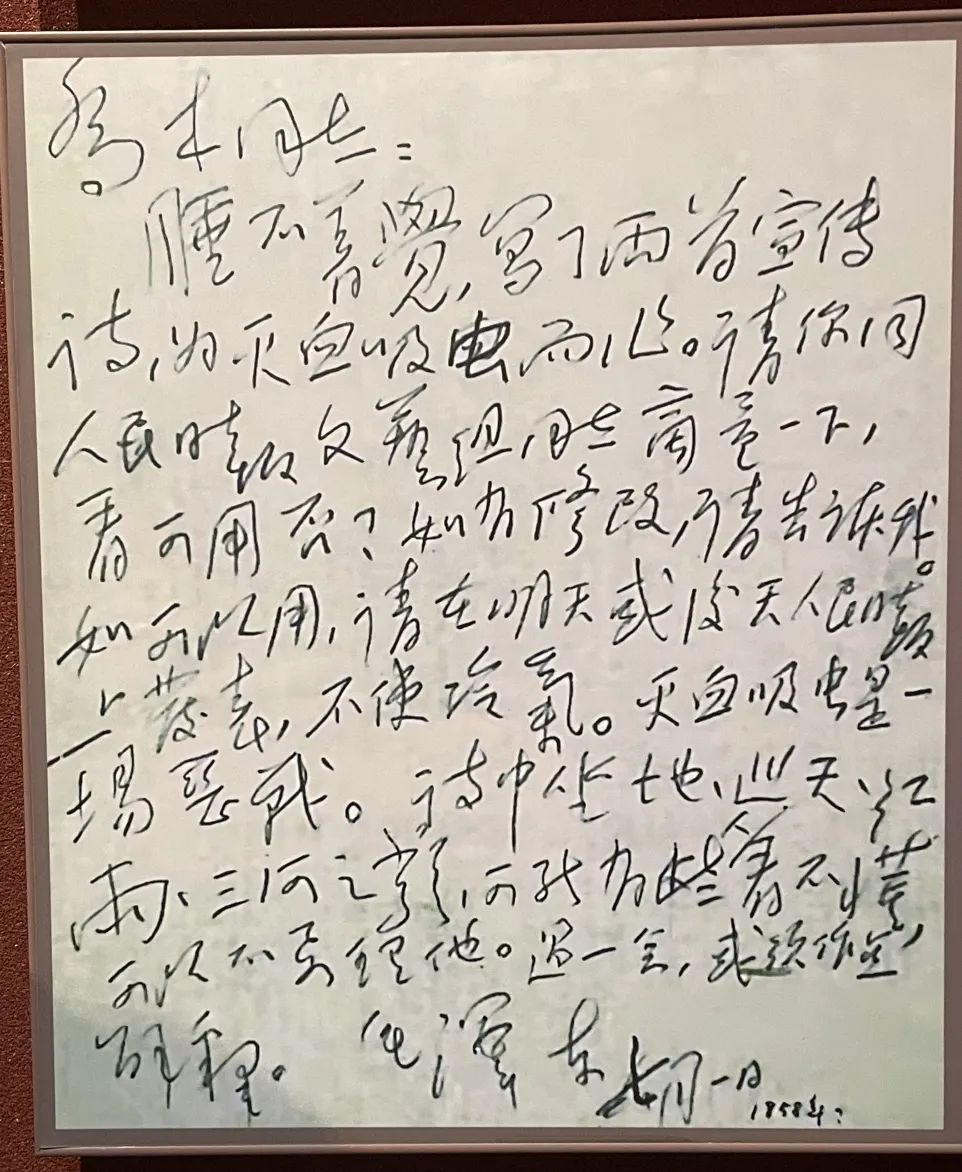 乔木同志：
睡不着覺，写了两首宣传
诗，为灭血吸虫而作。请你同
人民日报文藝组同志商量一下，
看可用否？如有修改，请告诉我。
如可以用，请在明天或后天人民日报
上發表，不使冷氣。灭血吸虫是一
場恶战。诗中坐地、巡天、红
雨、三河之类，可能有些人看不懂，
可以不要理他。过一会，或须作点
解释。 毛澤东 七月一日
1958年？